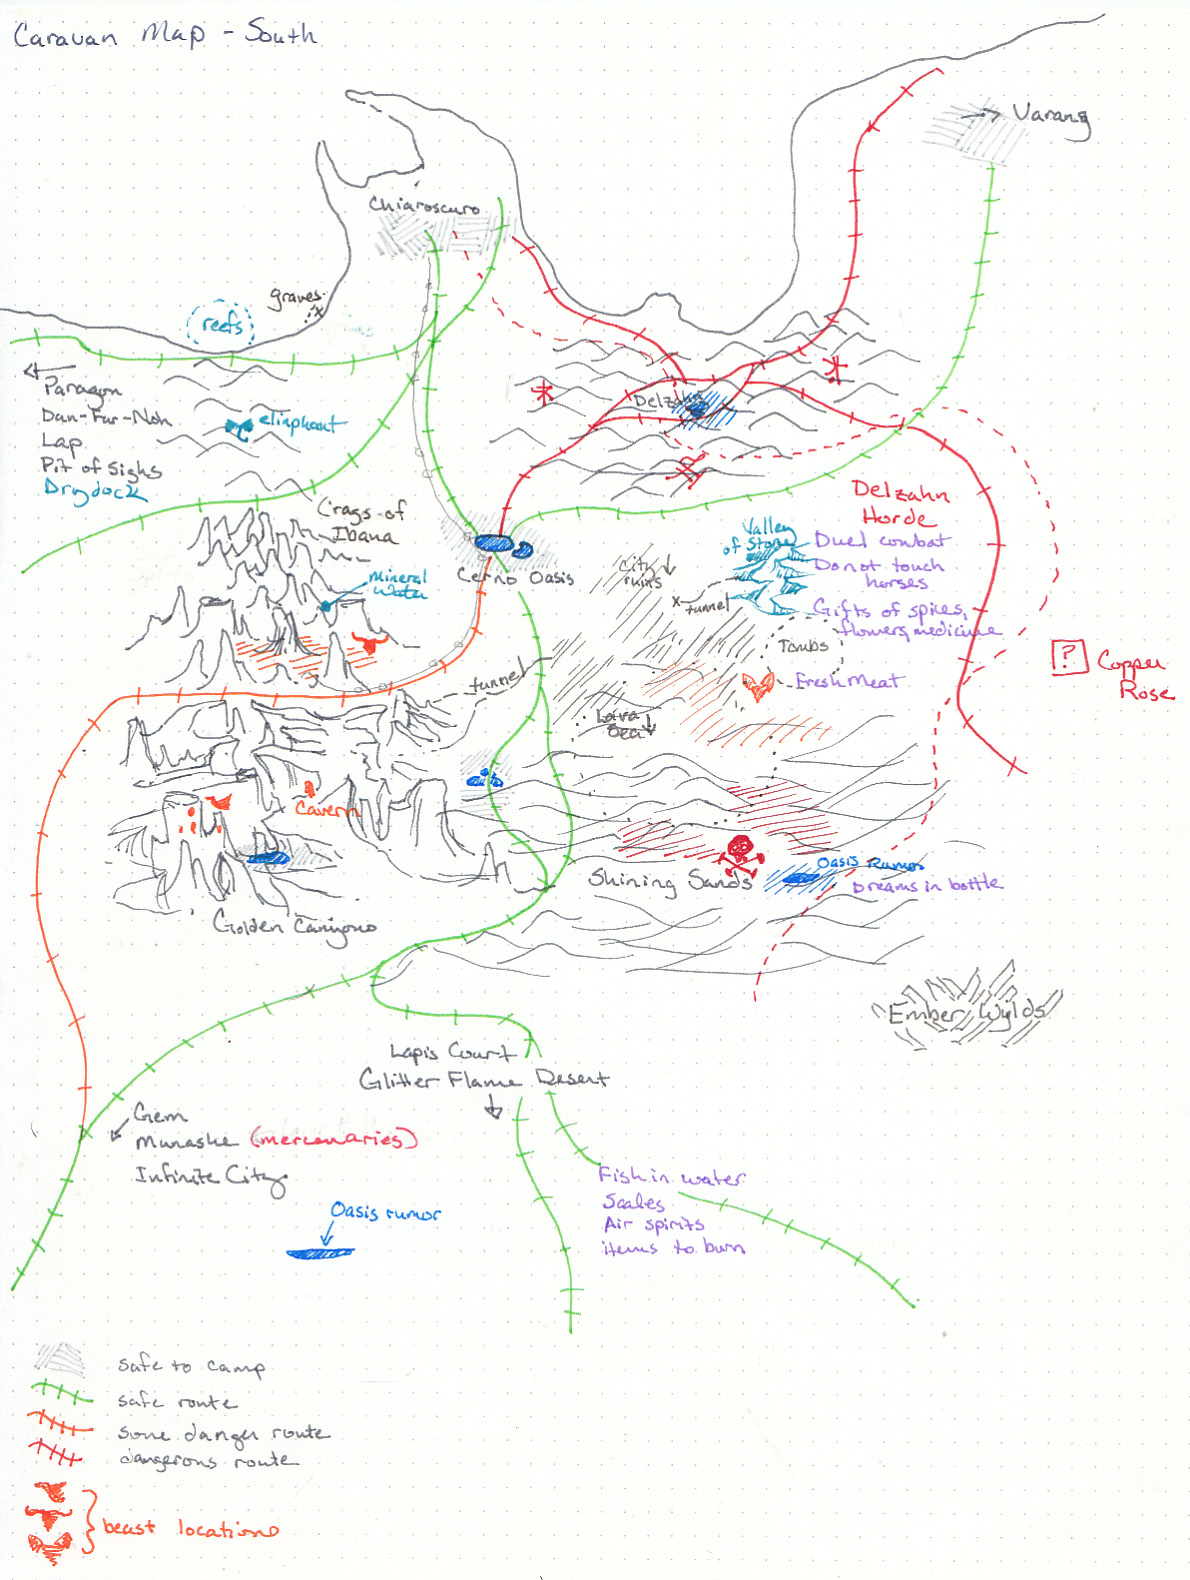 Caravan Map - South
Varang
Chiaroscuro
graves
reefs
Paragon
Dan-Fur-Noh
Lap
Pit of Sighs
Drydock
elinphant
Delzahn
Crags of
Ibana
Mineral
Water
Cerno Oasis
City
ruins
Valley
of Stone
x tunnel
Delzahn
Horde
Duel combat
Do not touch
horses
Gifts of spices,
flowers, medicine
Tombs
Fresh Meat
? Copper
Rose
tunnel
Lava
Sea
Cavern
Golden Canyons
Shining Sands
Oasis Rumor
Dreams in bottle
Ember Wylds
Lapis Court
Glitter Flame Desert
Gem
Munashe (mercenaries)
Infinite City
Oasis rumor
Fish in water
Scales
Air spirits
items to burn
safe to camp
safe route
some danger route
dangerous route
beast locations